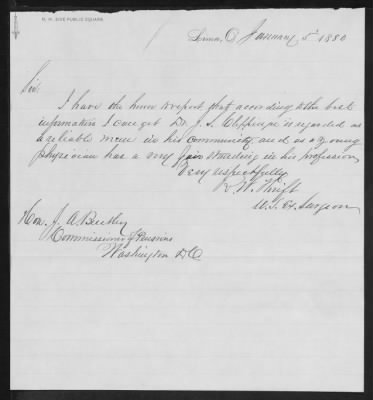 N. W. SIDE PUBLIC SQUARE.
Lima, O. January 5th 1880
Sir,
I have the honor to report that according to the best
information I can get Dr J. S. is regarded as
a reliable man in his community and as a young
physician has a very fair standing in his profession
Very respectfully
W. Thrift
U. S. Ex. Surgeon
Hon. J. A. Bentley
Commissioner of Pensions
Washington D.C.